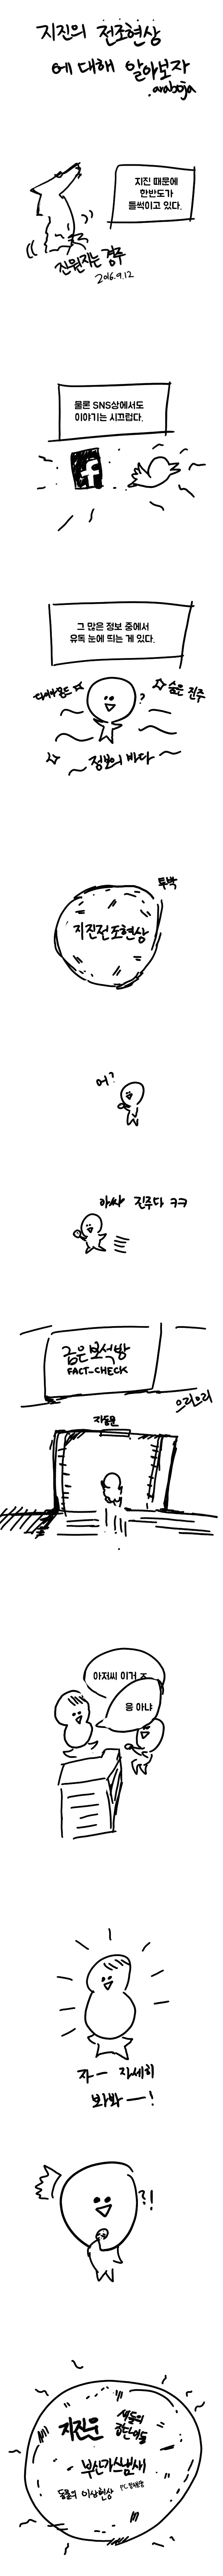 지진의 전조현상
에 대해 알아보자
.araboja
지진 때문에
한반도가
들썩이고 있다.
진원지는 경주
2016.9.12
물론 SNS상에서도
이야기는 시끄럽다.
f
그 많은 정보 중에서
유독 눈에 띄는 게 있다.
다이아몬드
숨은 진주
?
정보의 바다
투박
지진전조현상
어?
아싸 진주다 ㅋㅋ
굽은보석방
FACT-CHECK
으리으리
자동문
아저씨 이거 ㅈ
응 아냐
자— 자세히
봐봐—!
?!
지진운
새들의
집단이동
부산가스냄새
동물의 이상현상